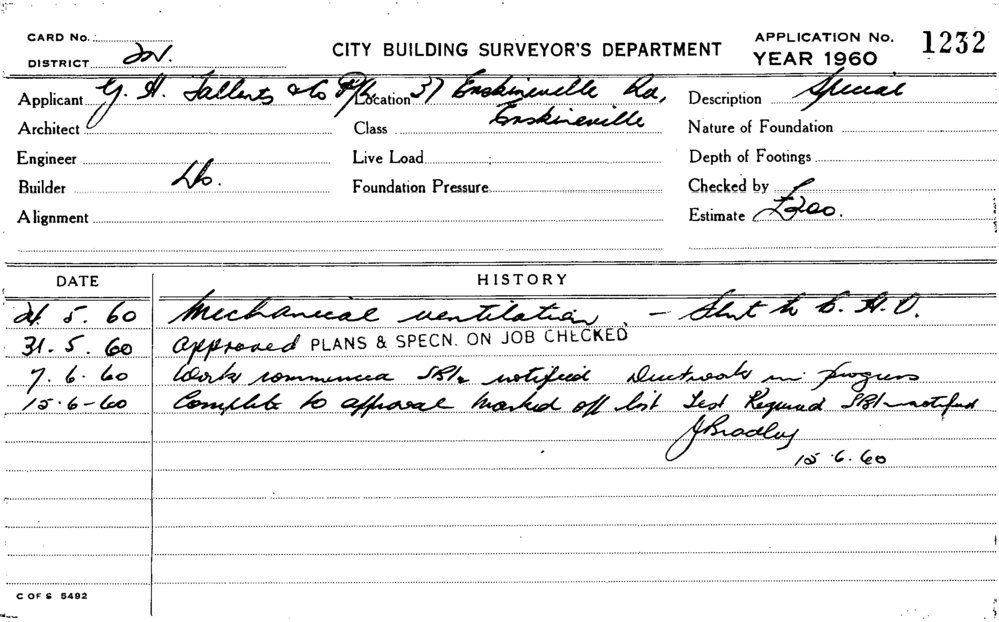 CARD No.
DISTRICT
CITY BUILDING SURVEYOR'S DEPARTMENT
APPLICATION No. 1232
YEAR 1960
Applicant G. H. & Co P/L
Location 37 Erskineville Rd,
Erskineville
Description Special
Architect
Class
Nature of Foundation
Engineer
Live Load
Depth of Footings
Builder Do.
Foundation Pressure
Checked by
Alignment
Estimate £300.
DATE HISTORY
5. 60 Mechanical ventilation – to C. H. O.
31. 5. 60 Approved PLANS & SPECN. ON JOB CHECKED
7. 6. 60 Work commenced notified Ductwork in progress
15-6-60 Complete to approval marked off list Test Required notified
J Bradley
15.6.60
C OF S 5492